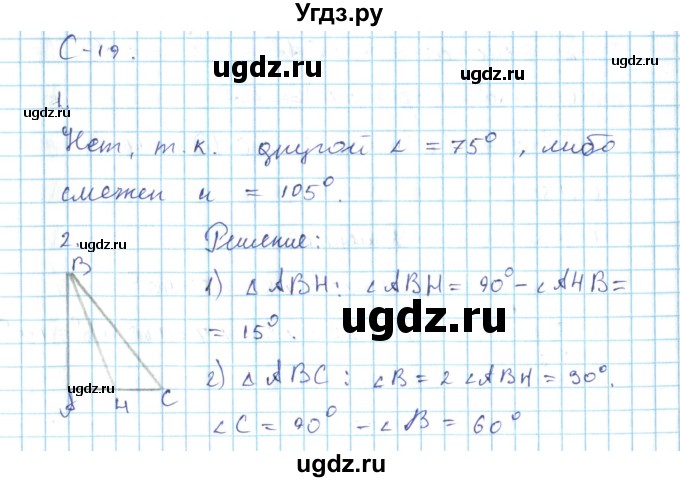 Угдз.ру
С-19.
ugdz.ru
ugdz.ru
1.
ugdz.ru
Нет, т.к. другой ∠ = 75°, либо
смежен и = 105°.
2.
ugdz.ru
Решение:
B
1) △ABH: ∠ABH = 90° - ∠AHB =
ugdz.ru
= 15°.
2) △ABC: ∠B = 2∠ABH = 30°.
ugdz.ru
A H C
∠C = 90° - ∠B = 60°
ugdz.ru